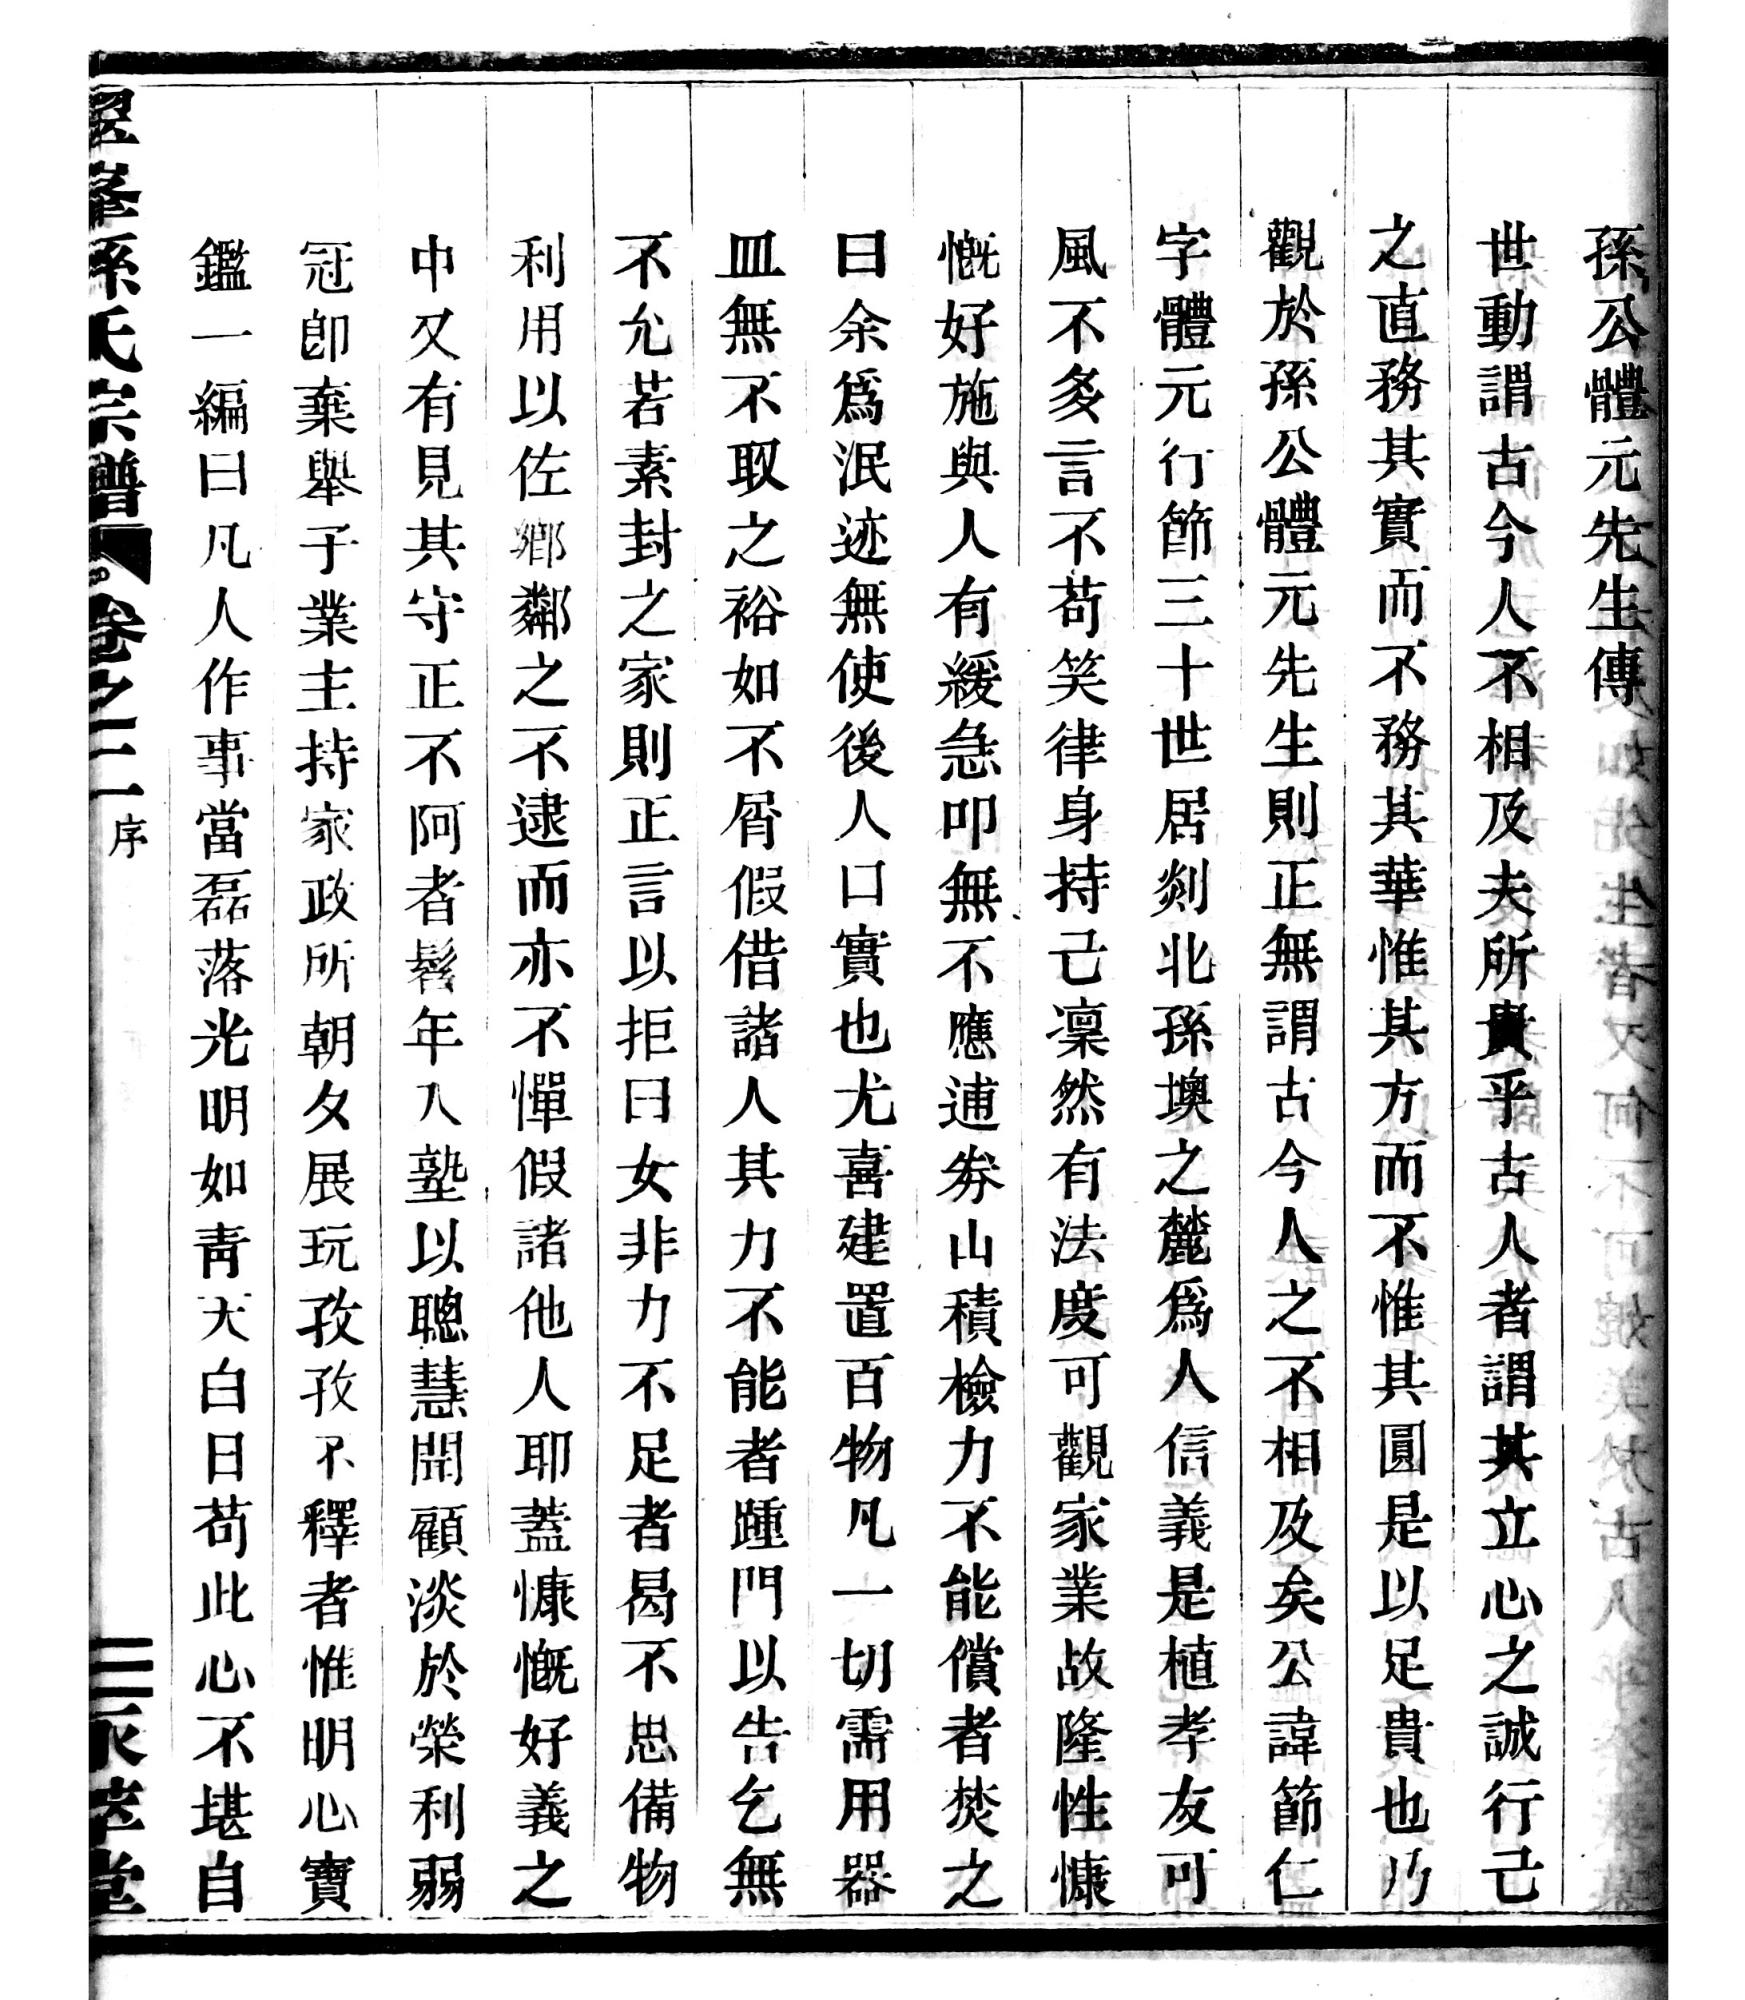 孫公體元先生傳
世動謂古今人不相及夫所貴乎古人者謂其立心之誠行己
之直務其實而不務其華惟其方而不惟其圓是以足貴也乃
觀於孫公體元先生則正無謂古今人之不相及矣公諱節仁
字體元行節三十世居剡北孫墺之麓爲人信義是植孝友可
風不多言不苟笑律身持己凜然有法度可觀家業故隆性慷
慨好施與人有緩急叩無不應逋券山積檢力不能償者焚之
曰余爲泯迹無使後人口實也尤喜建置百物凡一切需用器
皿無不取之裕如不屑假借諸人其力不能者踵門以告乞無
不允若素封之家則正言以拒曰女非力不足者曷不思備物
利用以佐鄉鄰之不逮而亦不憚假諸他人耶蓋慷慨好義之
中又有見其守正不阿者髫年入塾以聰慧聞顧淡於榮利弱
冠卽棄舉子業主持家政所朝夕展玩孜孜不釋者惟明心寶
鑑一編曰凡人作事當磊落光明如靑天白日苟此心不堪自
孫氏宗譜 卷之二 序 三 承 堂